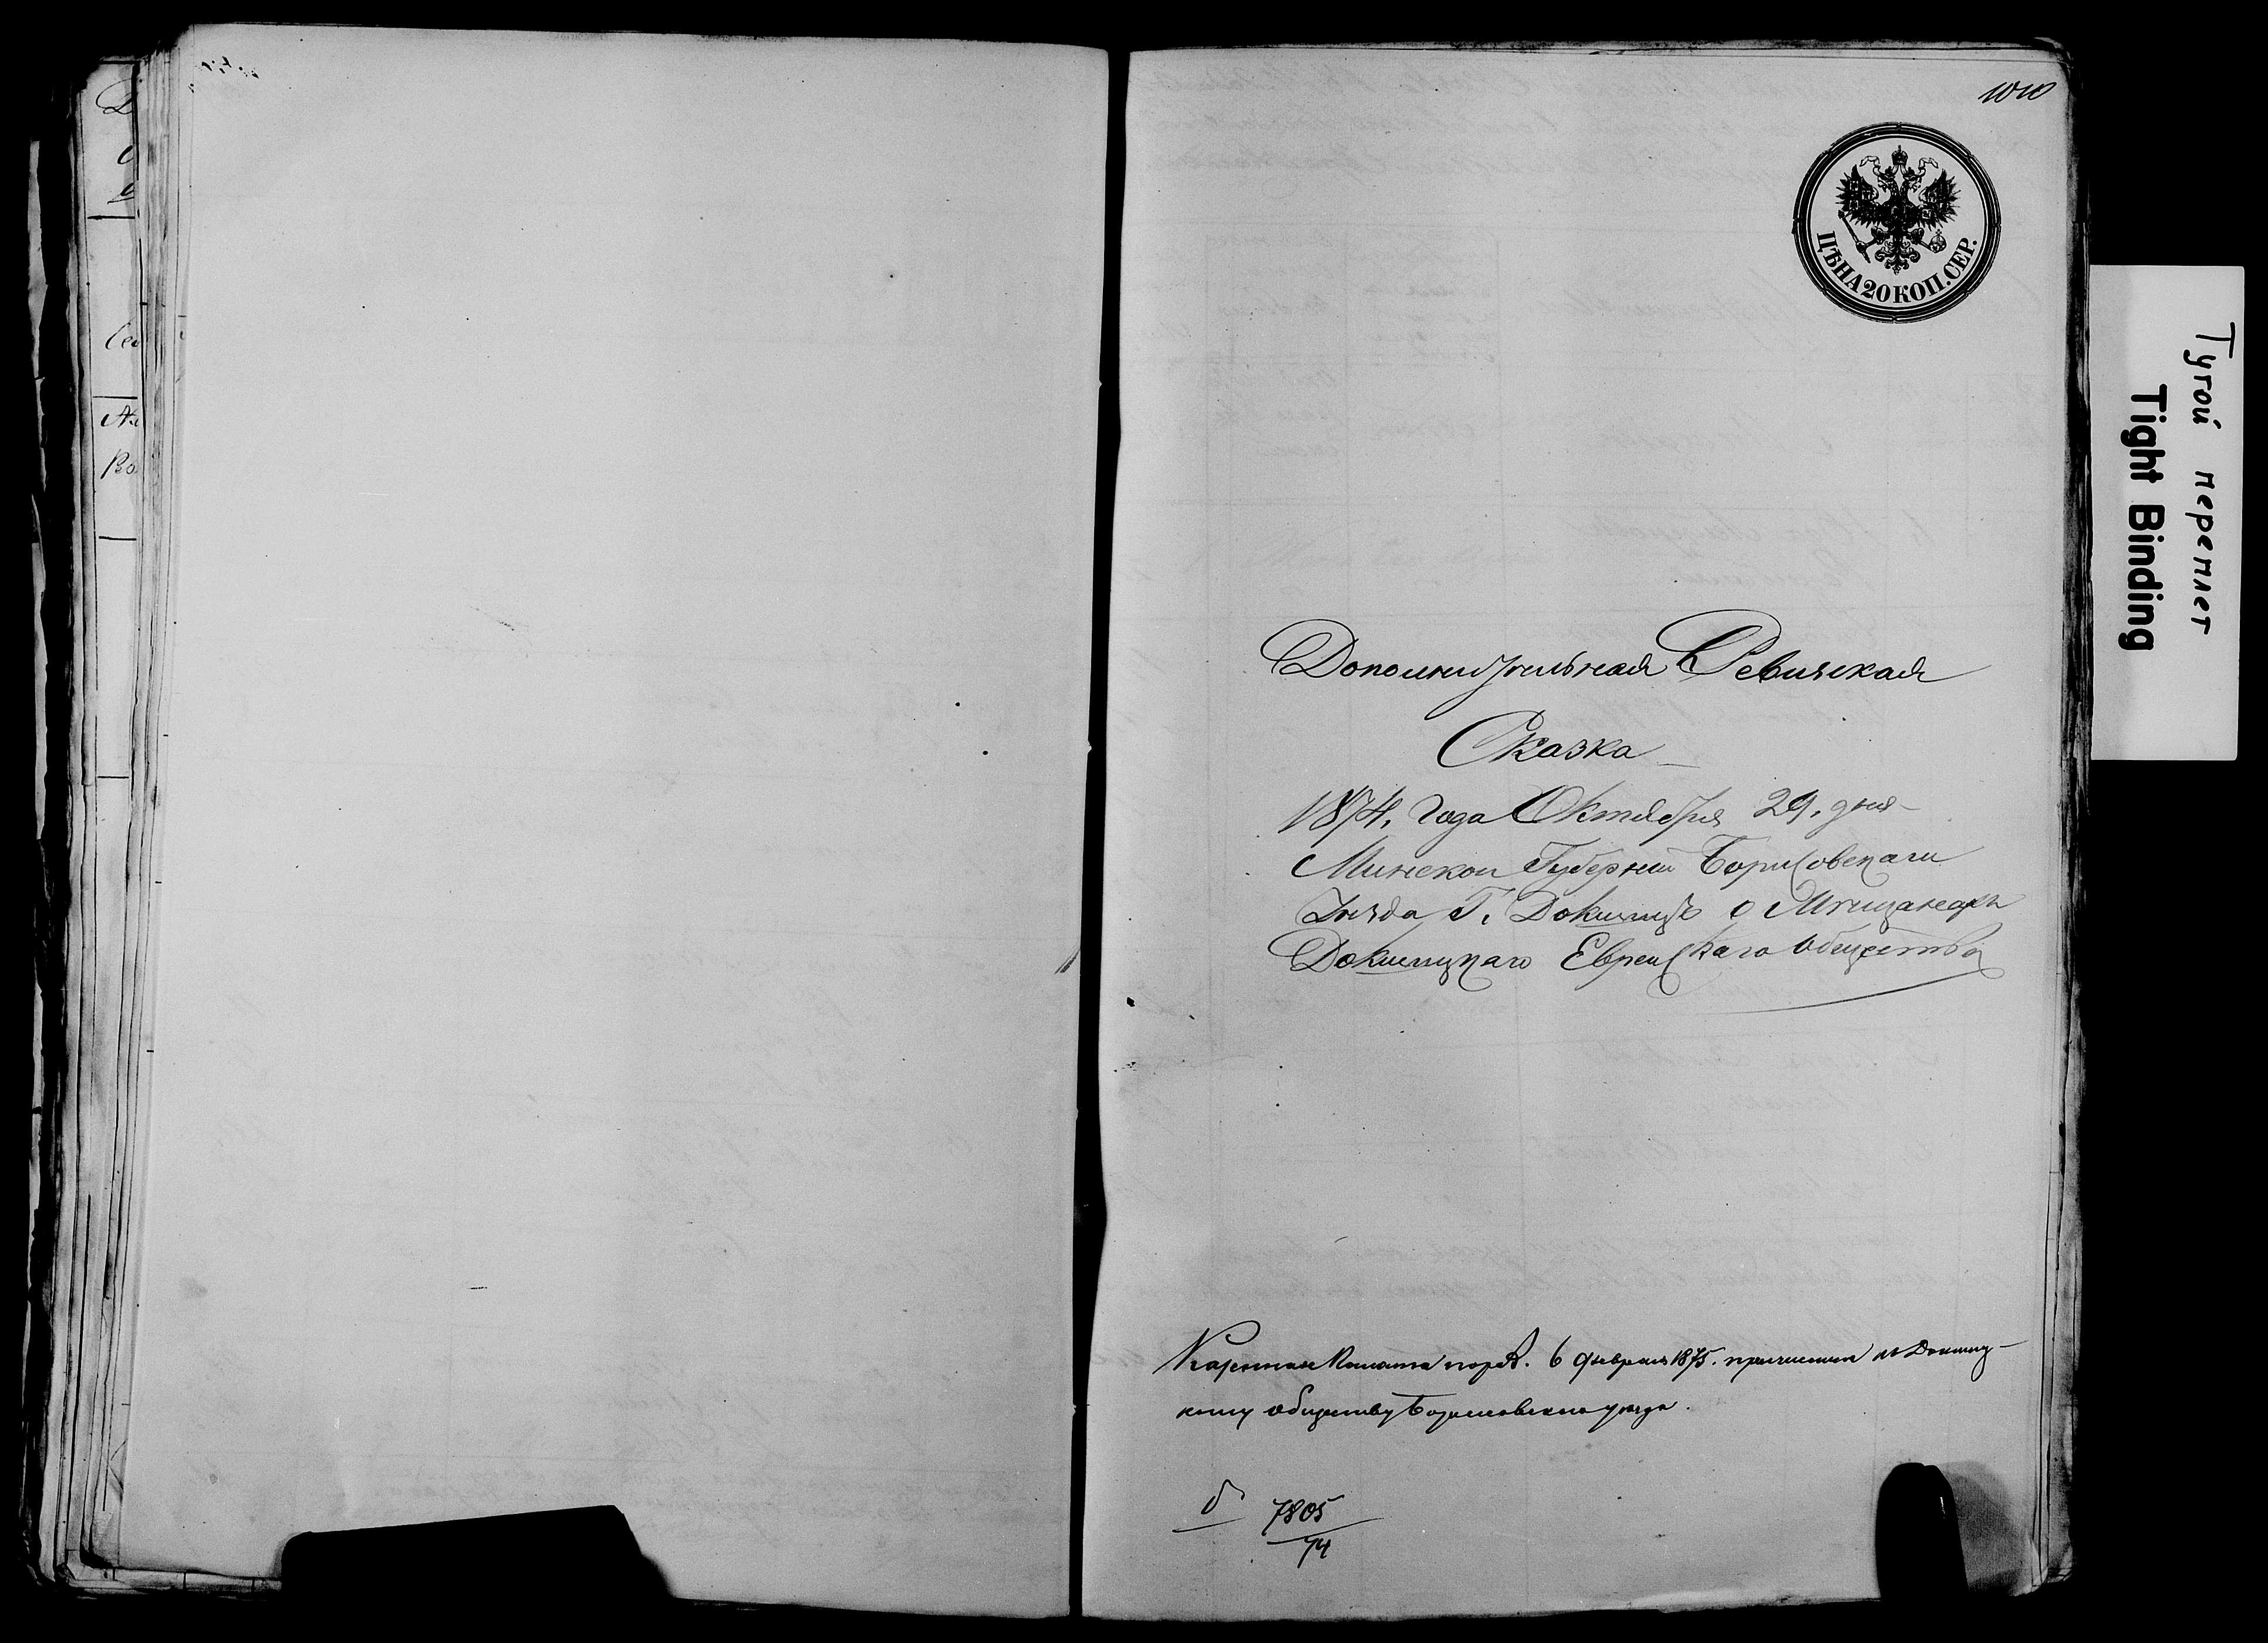 1010
ЦѢНА 20 КОП. СЕР.
Дополнительная Ревизская
Сказка
1874, Года Октября 29, дня
Минской Губернии Борисовскаго
Уезда Г. Докшицъ о Мещанахъ
Докшицкаго Еврейскаго общества
Казенная Палата 6 февраля 1875. причислила къ Докшиц-
кому обществу Борисовскаго уезда.
7805
74
Тугой переплет
Tight Binding